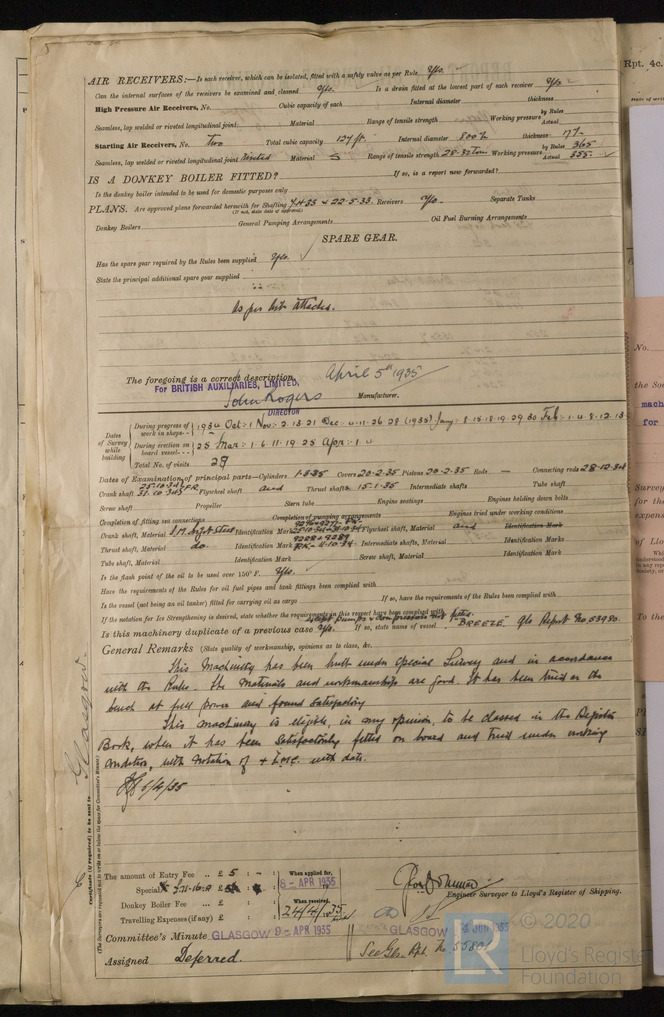 Rpt. 4c.
AIR RECEIVERS:—Is each receiver, which can be isolated, fitted with a safety valve as per Rule Yes.
Can the internal surfaces of the receivers be examined and cleaned Yes. Is a drain fitted at the lowest part of each receiver Yes
High Pressure Air Receivers, No. Cubic capacity of each Internal diameter thickness
Seamless, lap welded or riveted longitudinal joint Material Range of tensile strength Working pressure by Rules Actual
Starting Air Receivers, No. two Total cubic capacity 127 ft. Internal diameter thickness
Seamless, lap welded or riveted longitudinal joint riveted Material S Range of tensile strength 28-32 tons Working pressure by Rules 365 Actual 355
IS A DONKEY BOILER FITTED? If so, is a report now forwarded?
Is the donkey boiler intended to be used for domestic purposes only
PLANS. Are approved plans forwarded herewith for Shafting 7-4-33 & 22-5-33 Receivers Yes. Separate Tanks
(If not, state date of approval)
Donkey Boilers General Pumping Arrangements Oil Fuel Burning Arrangements
SPARE GEAR.
Has the spare gear required by the Rules been supplied Yes.
State the principal additional spare gear supplied
As per list attached.
The foregoing is a correct description, April 5th 1935
For BRITISH AUXILIARIES, LIMITED,
John Rogers Manufacturer.
DIRECTOR
Dates of Survey while building
During progress of work in shops - - 1934 Oct: 1 Nov: 2.13.21 Dec: 4.11.26.28 (1935) Jany: 8.15.18.19.29.30 Feb: 1.4.8.12.13
During erection on board vessel - - - 25 Mar: 1.6.11.19.25 Apr: 1.4
Total No. of visits 29
Dates of Examination of principal parts—Cylinders 1-3-35 Covers 20-2-35 Pistons 20-2-35 Rods — Connecting rods 28-12-34
Crank shaft 25-10-34 31-10-34 Flywheel shaft and Thrust shafts 15-1-35 Intermediate shafts Tube shaft
Screw shaft Propeller Stern tube Engine seatings Engines holding down bolts
Completion of fitting sea connections Completion of pumping arrangements Engines tried under working conditions
Crank shaft, Material S.M. Ingot Steel Identification Mark Flywheel shaft, Material and Identification Mark
Thrust shaft, Material do. Identification Mark Intermediate shafts, Material Identification Marks
Tube shaft, Material Identification Mark Screw shaft, Material Identification Mark
Is the flash point of the oil to be used over 150° F. Yes.
Have the requirements of the Rules for oil fuel pipes and tank fittings been complied with
Is the vessel (not being an oil tanker) fitted for carrying oil as cargo If so, have the requirements of the Rules been complied with
If the notation for Ice Strengthening is desired, state whether the requirements in this respect have been complied with
except pumps & compressors not fitted.
Is this machinery duplicate of a previous case Yes. If so, state name of vessel "BREEZE" Gls Report No. 53980
General Remarks (State quality of workmanship, opinions as to class, &c.
This Machinery has been built under Special Survey and in accordance
with the Rules. The Materials and workmanship are good. It has been tried on the
bench at full power and found satisfactory
This machinery is eligible, in my opinion, to be classed in the Register
Book, when it has been satisfactorily fitted on board and tried under working
conditions, with notation of + LMC with date.
5/4/35
Glasgow.
Certificate (if required) to be sent to
(The Surveyors are requested not to write on or below the space for Committee's Minute.)
The amount of Entry Fee .. £ 5 : - : When applied for,
Special £ 8 - APR 1935
Donkey Boiler Fee .. £ : : When received,
Travelling Expenses (if any) £ : : 24/4/35
Engineer Surveyor to Lloyd's Register of Shipping.
Committee's Minute GLASGOW 9 - APR 1935 GLASGOW JUN 1935
Assigned Deferred. See Gls. Rpt. No.
LR © 2020
Lloyd's Register
Foundation